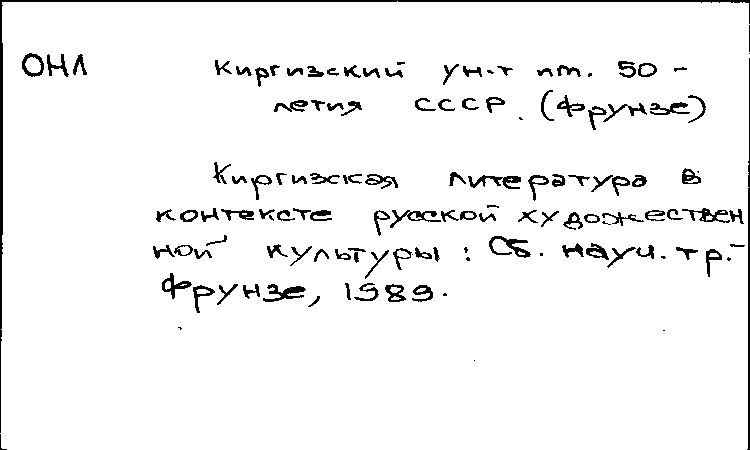 ОНЛ Киргизский ун-т им. 50-
летия СССР. (Фрунзе)
Киргизская литература в
контексте русской художествен
ной культуры: Сб. науч. тр.-
Фрунзе, 1989.